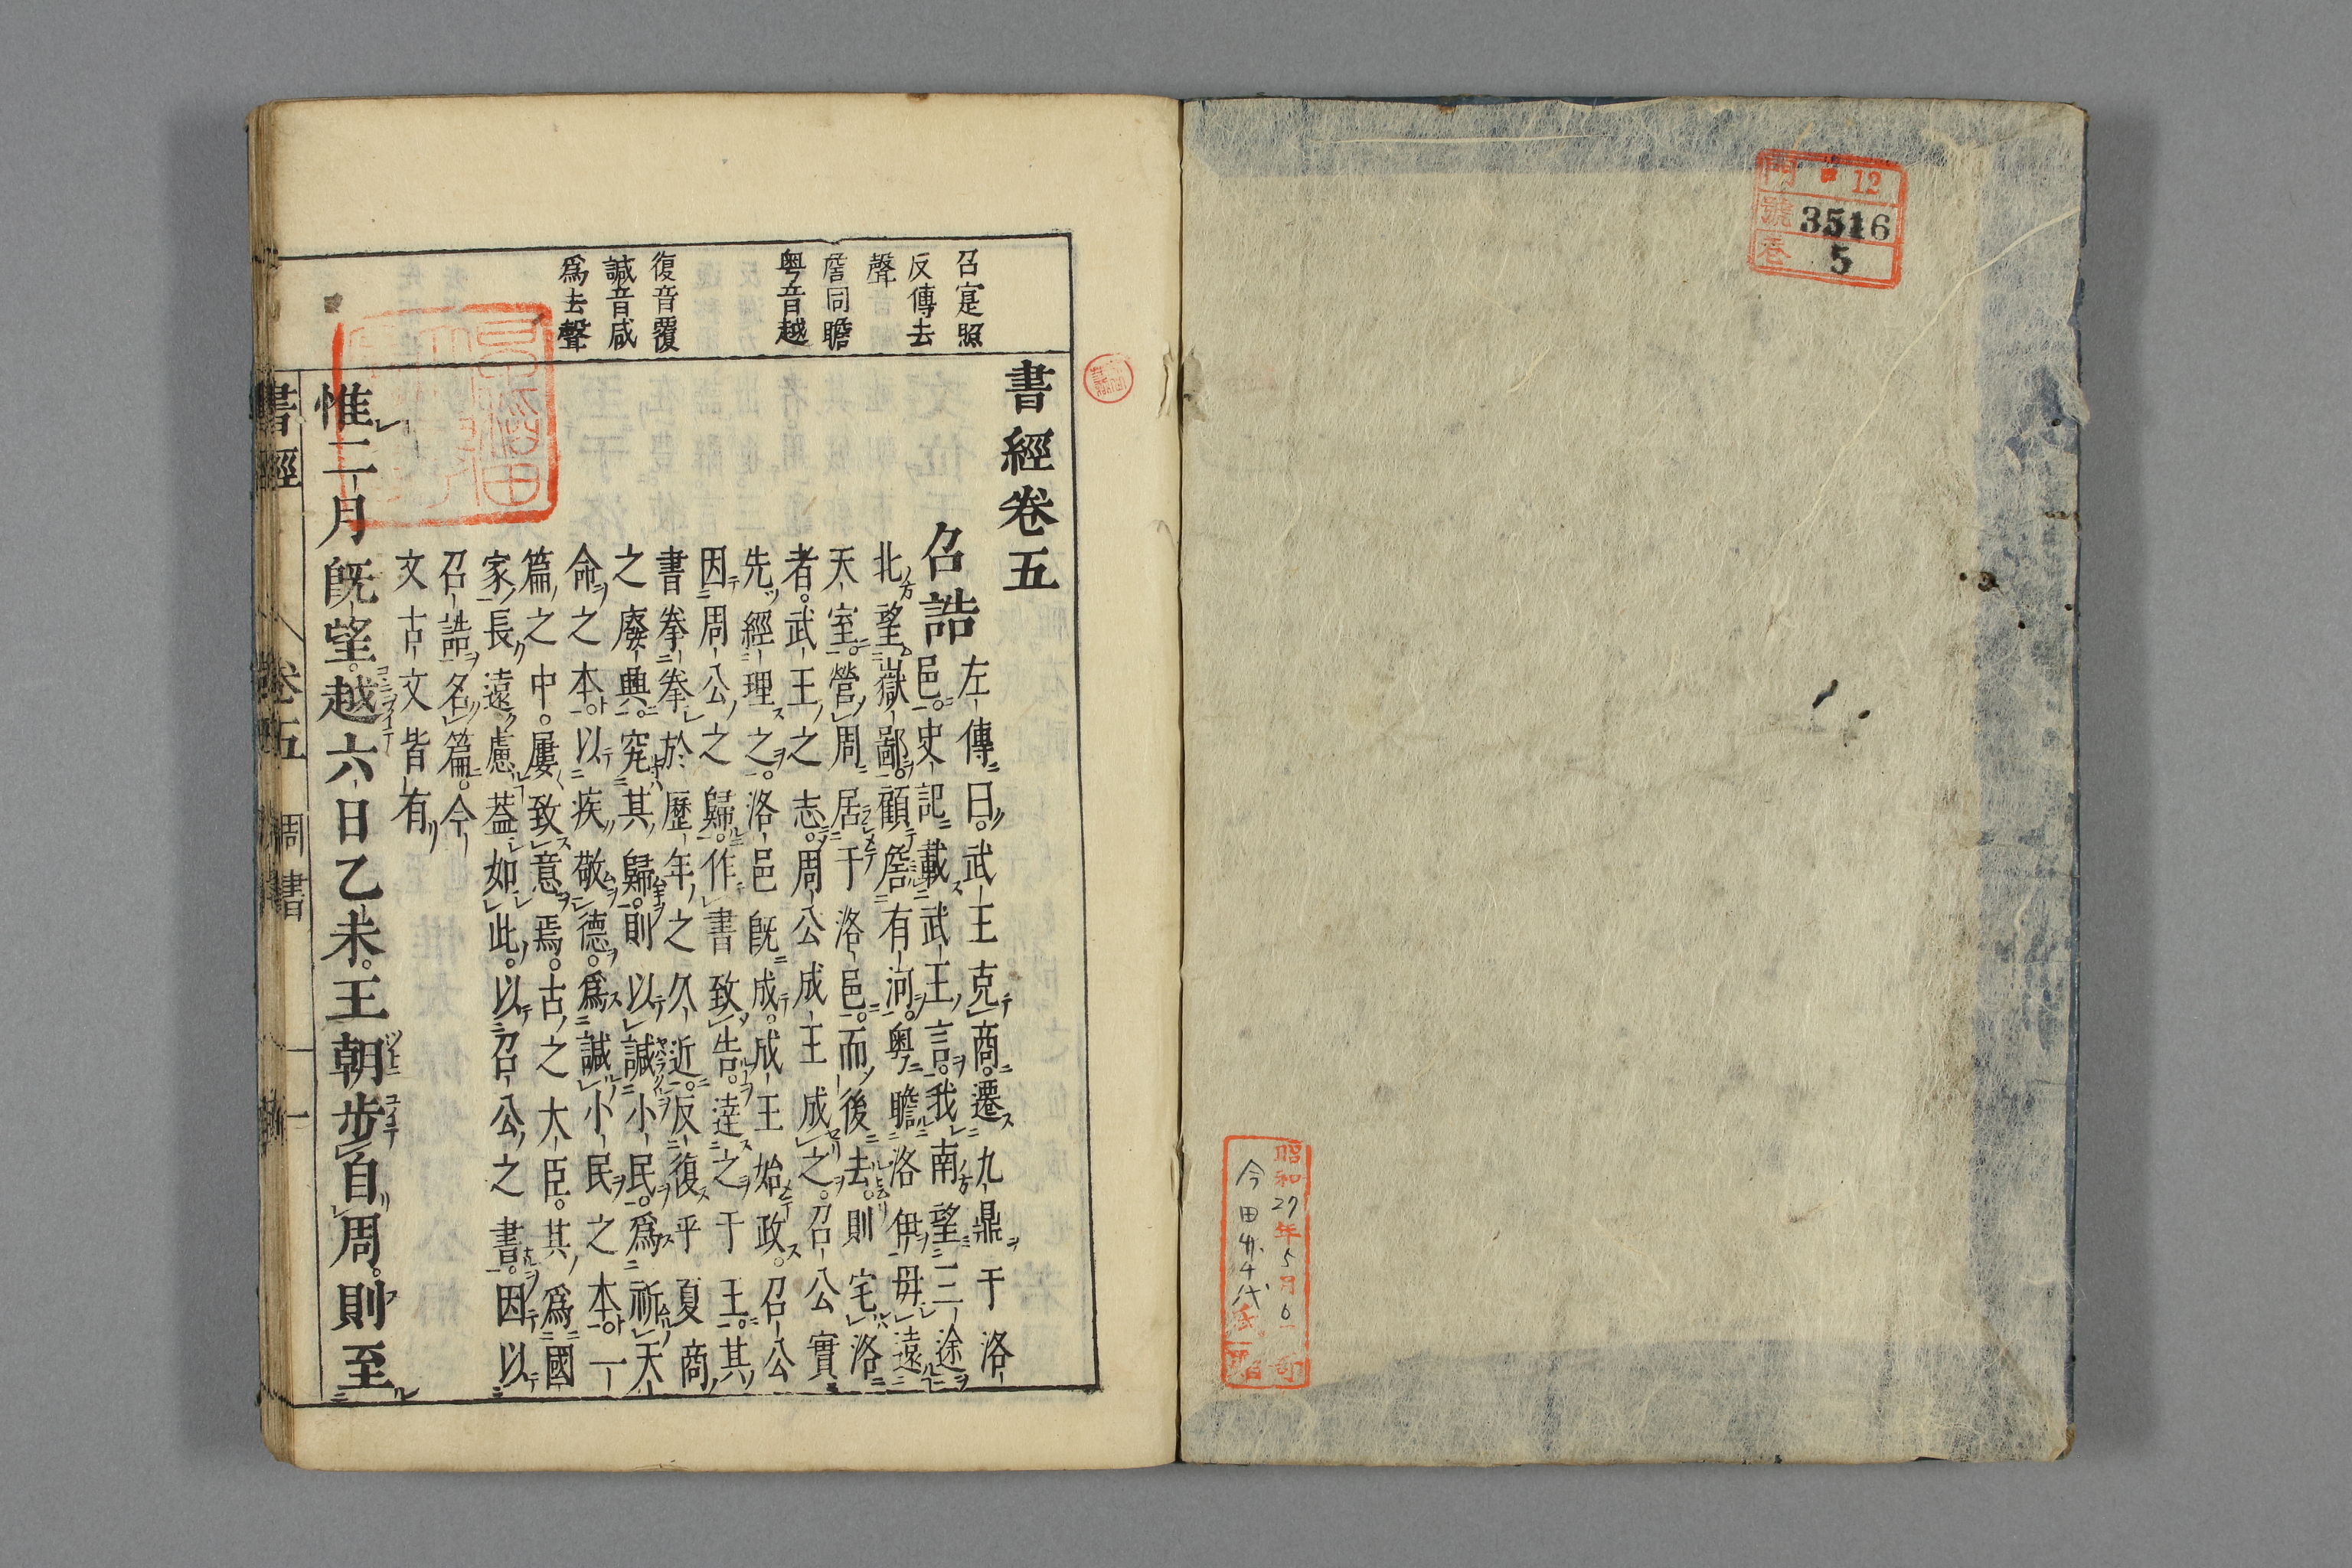 門 12
號 3516
卷 5
昭和27年5月6
今田
召寔照
反傳去
聲
詹同瞻
粤音越
復音覆
諴音咸
爲去聲
書經卷五
召誥
左傳曰。武王克商。遷九鼎于洛
邑。史記載武王言。我南望三途
北望嶽鄙。顧詹有河。粤瞻洛伊。毋遠
天室。營周居于洛邑。而後去。則宅洛
者。武王之志。周公成王成之。召公實
先經理之。洛邑既成。成王始政。召公
因周公之歸。作書致告。達之于王。其
書拳拳於歷年之久近。反復乎夏商
之廢興。究其歸。則以諴小民。爲祈天
命之本。以疾敬德。爲諴小民之本。一
篇之中。屢致意焉。古之大臣。其爲國
家長遠慮蓋如此。以召公之書。因以
召誥名篇。今
文古文皆有
惟二月既望。越六日乙未。王朝步自周。則至
書經 卷五 周書 一